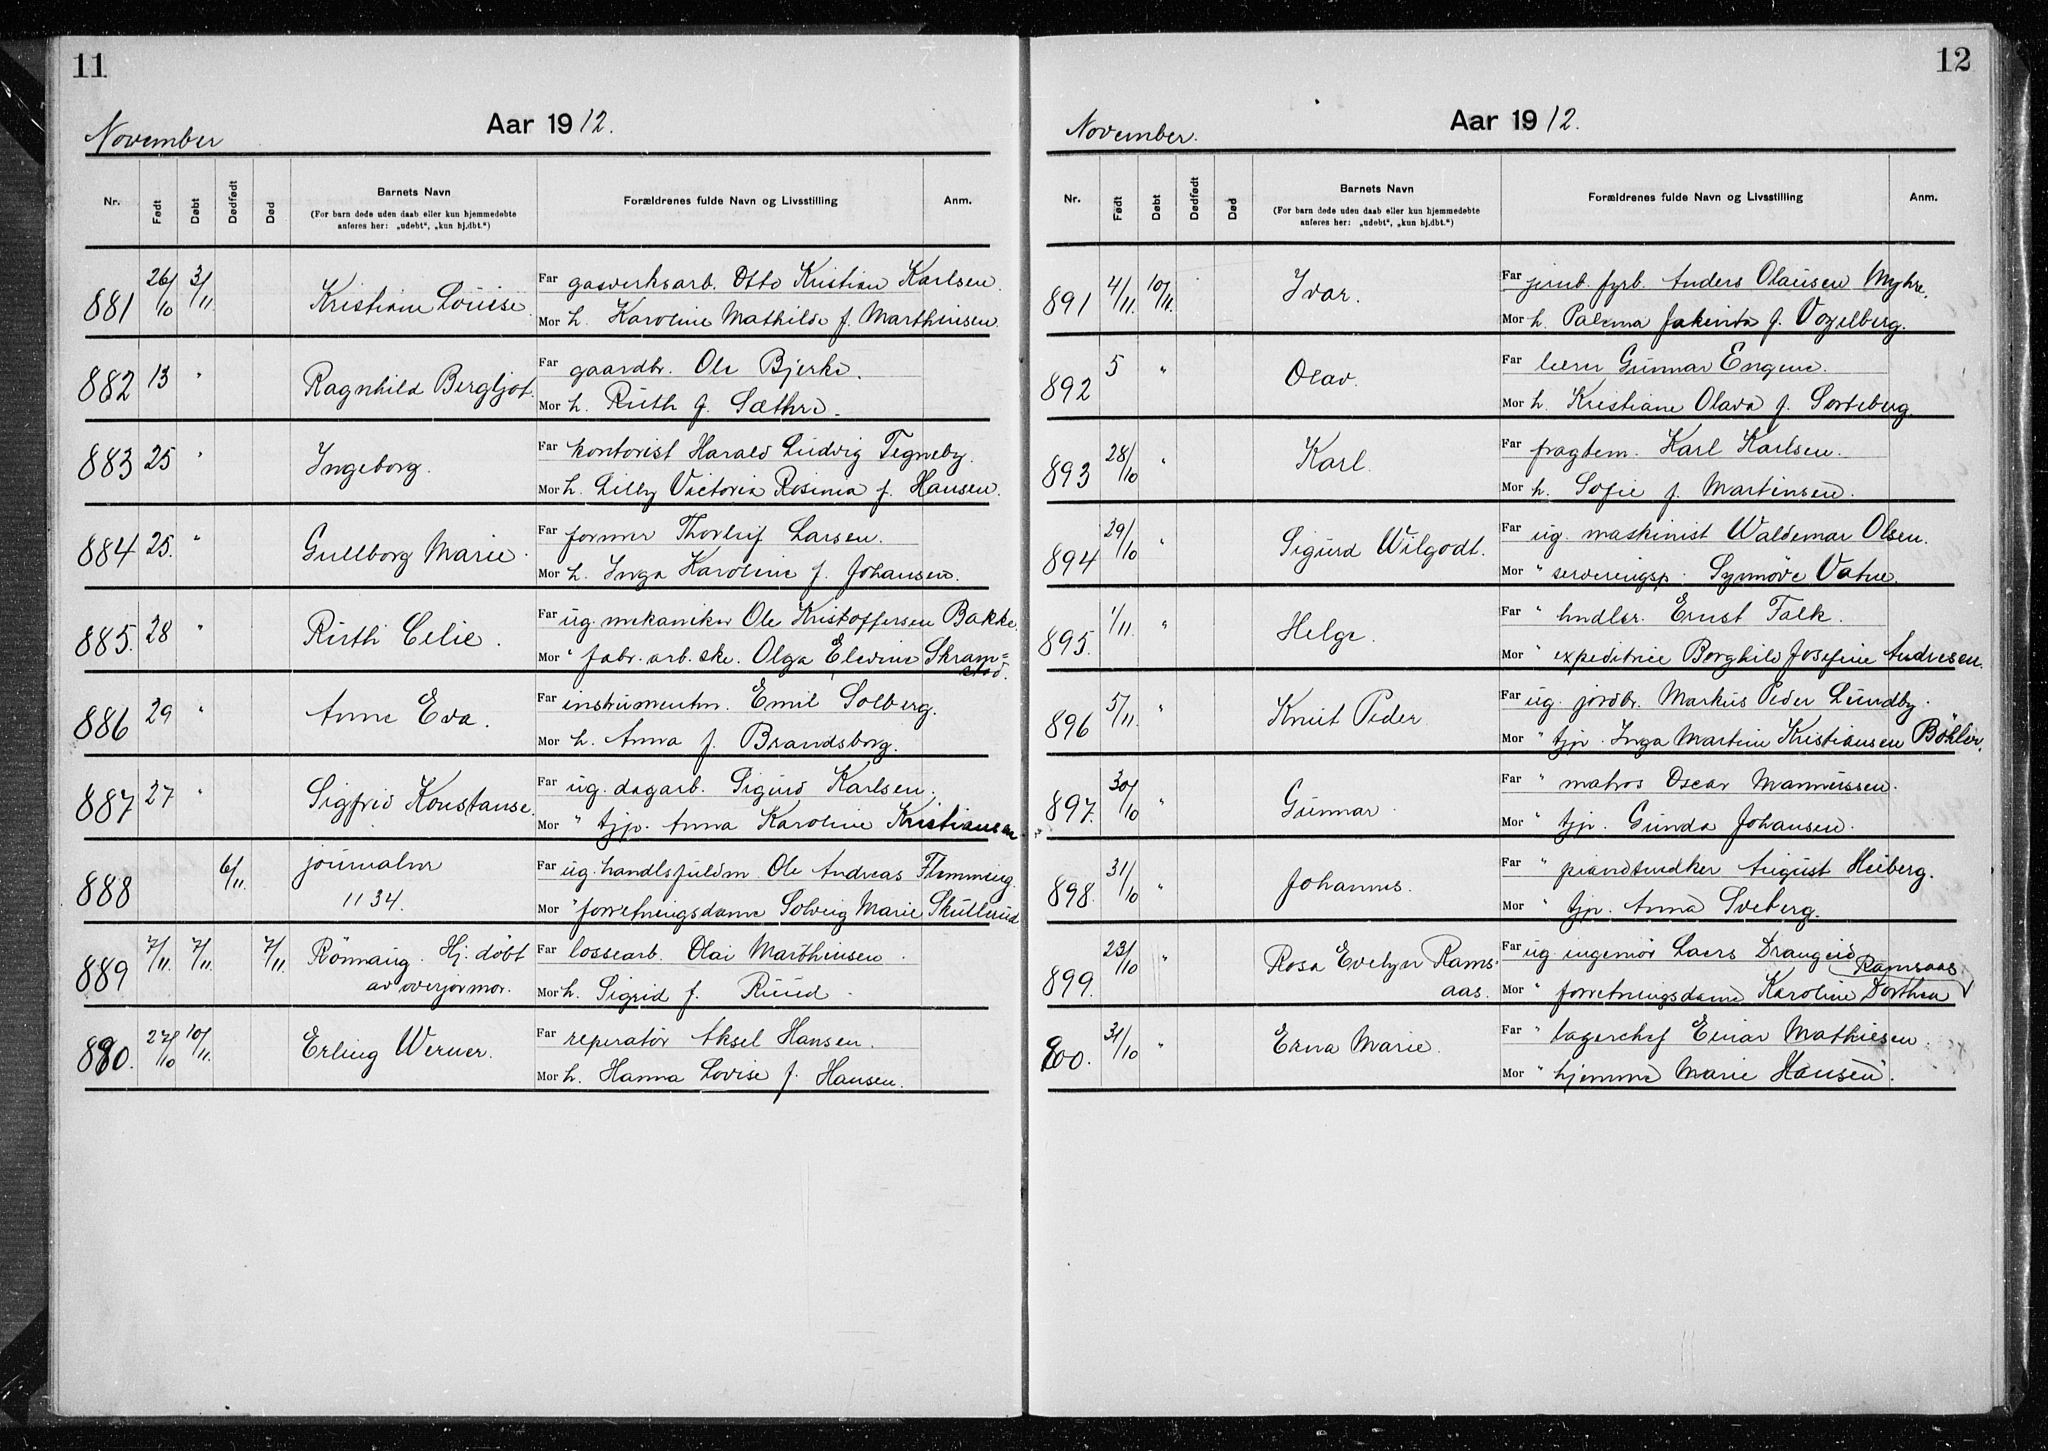 11
November
Aar 1912.
Nr. Født Døbt Dødfødt Død Barnets Navn Forældrenes fulde Navn og Livsstilling Anm.
(For barn døde uden daab eller kun hjemmedøbte
anføres her: „udøbt“, „kun hj.dbt.“)
881 26/10 3/11 Kristiane Louise. Far gasverksarb. Otto Kristian Karlsen.
Mor h. Karoline Mathilde f. Marthinsen.
882 13 " Ragnhild Bergljot. Far gaardbr. Ole Bjerke.
Mor h. Ruth f. Sæthre.
883 25 " Ingeborg. Far kontorist Harald Ludvig Tegneby.
Mor h. Lilly Victoria Rosina f. Hansen.
884 25. " Gullborg Marie. Far former Thorleif Larsen.
Mor h. Inga Karoline f. Johansen.
885. 28 " Ruth Celie. Far ug. mekaniker Ole Kristoffersen Bakke.
Mor " fabr. arb.ske. Olga Elevine Skram=
stad.
886 29 " Anne Eva. Far instrumentm. Emil Solberg.
Mor h. Anna f. Brandsborg.
887 27 " Sigfrid Konstanse. Far ug. dagarb. Sigurd Karlsen.
Mor " tjp. Anna Karoline Kristiansen
888 6/11. journalnr Far ug. handlsfuldm. Ole Andreas Flemming.
1134. Mor " forretningsdame Solveig Marie Skullerud
889 7/11. 7/11. 7/11. Rönnaug. Hj. döbt Far lossearb. Olai Marthinsen.
av overjormor. Mor h. Sigrid f. Ruud.
890. 27/10 10/11. Erling Werner. Far reperatör Aksel Hansen.
Mor h. Hanna Lovise f. Hansen.
12
November.
Aar 1912.
Nr. Født Døbt Dødfødt Død Barnets Navn Forældrenes fulde Navn og Livsstilling Anm.
(For barn døde uden daab eller kun hjemmedøbte
anføres her: „udøbt“, „kun hj.dbt.“)
891 4/11. 10/11. Ivar. Far jernb. fyrb. Anders Olausen Myhre.
Mor h. Palma Jakinta f. Vogelberg.
892 5 " Olav. Far lærer Gunnar Engene.
Mor h. Kristiane Olava f. Sorteberg.
893 28/10 " Karl. Far fragtem. Karl Karlsen.
Mor h. Sofie f. Martinsen.
894 29/10 " Sigurd Wilgodt. Far ug. maskinist Waldemar Olsen.
Mor " serveringsp. Synnöve Vatne.
895. 1/11. " Helge. Far " hndlsr. Ernst Falk.
Mor " expeditrice Borghild Josefine Andresen.
896 5/11. " Knut Peder. Far ug. jordbr. Markus Peder Lundby.
Mor " tjp. Inga Martine Kristiansen Böhler.
897. 30/10 " Gunnar. Far " matros Oscar Mannussen.
Mor " tjp. Gunda Johansen.
898. 31/10 " Johannes. Far " pianosnedker August Heiberg.
Mor " tjp. Anna Sveberg.
899. 23/10 " Rosa Evelyn Rams- Far ug. ingeniör Laers Draugeid
aas. Ramsaas.
Mor " forretningsdame Karoline Dorthea
900. 31/10 " Erna Marie. Far " lagerchef Einar Mathiesen.
Mor " hjemme Marie Hansen.